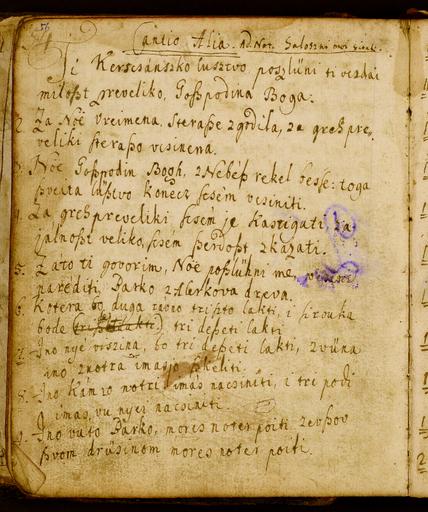 56
Cantio Alia. Ad Not.
Ti Kerscsánszko lusztvo, poszlüni ti vezdai
miloszt preveliko, Goszpodina Boga.
2. Za Nòe vreimena, steraße zgodila, za greh pre,
veliki steraßo vcsinena.
Nòe Goszpodin Bogh, z Nebéß rekel beße: toga
ßveita lüßtvo konecz scsém vcsiniti.
4. Za greh preveliki scsém je kastigati, za
jálnoszt veliko, scsem szkázati.
5. Zato ti govorim, Nòe poßlühni me,
narediti Barko z dreva.
6. Kotera bo duga trißto lakti, i siroka
bode tri deßeti lakti
7. Ino nyé viszina, bo tri deßeti lakti, zvüna
ino znotra imasjo
8. Ino notri imas nacsiniti, i tri podi
imas, vu nyei nacsiniti.
9. Ino vu to Barko, mores noter poiti, zevßov
ßvom drüsinom mores noter poiti.